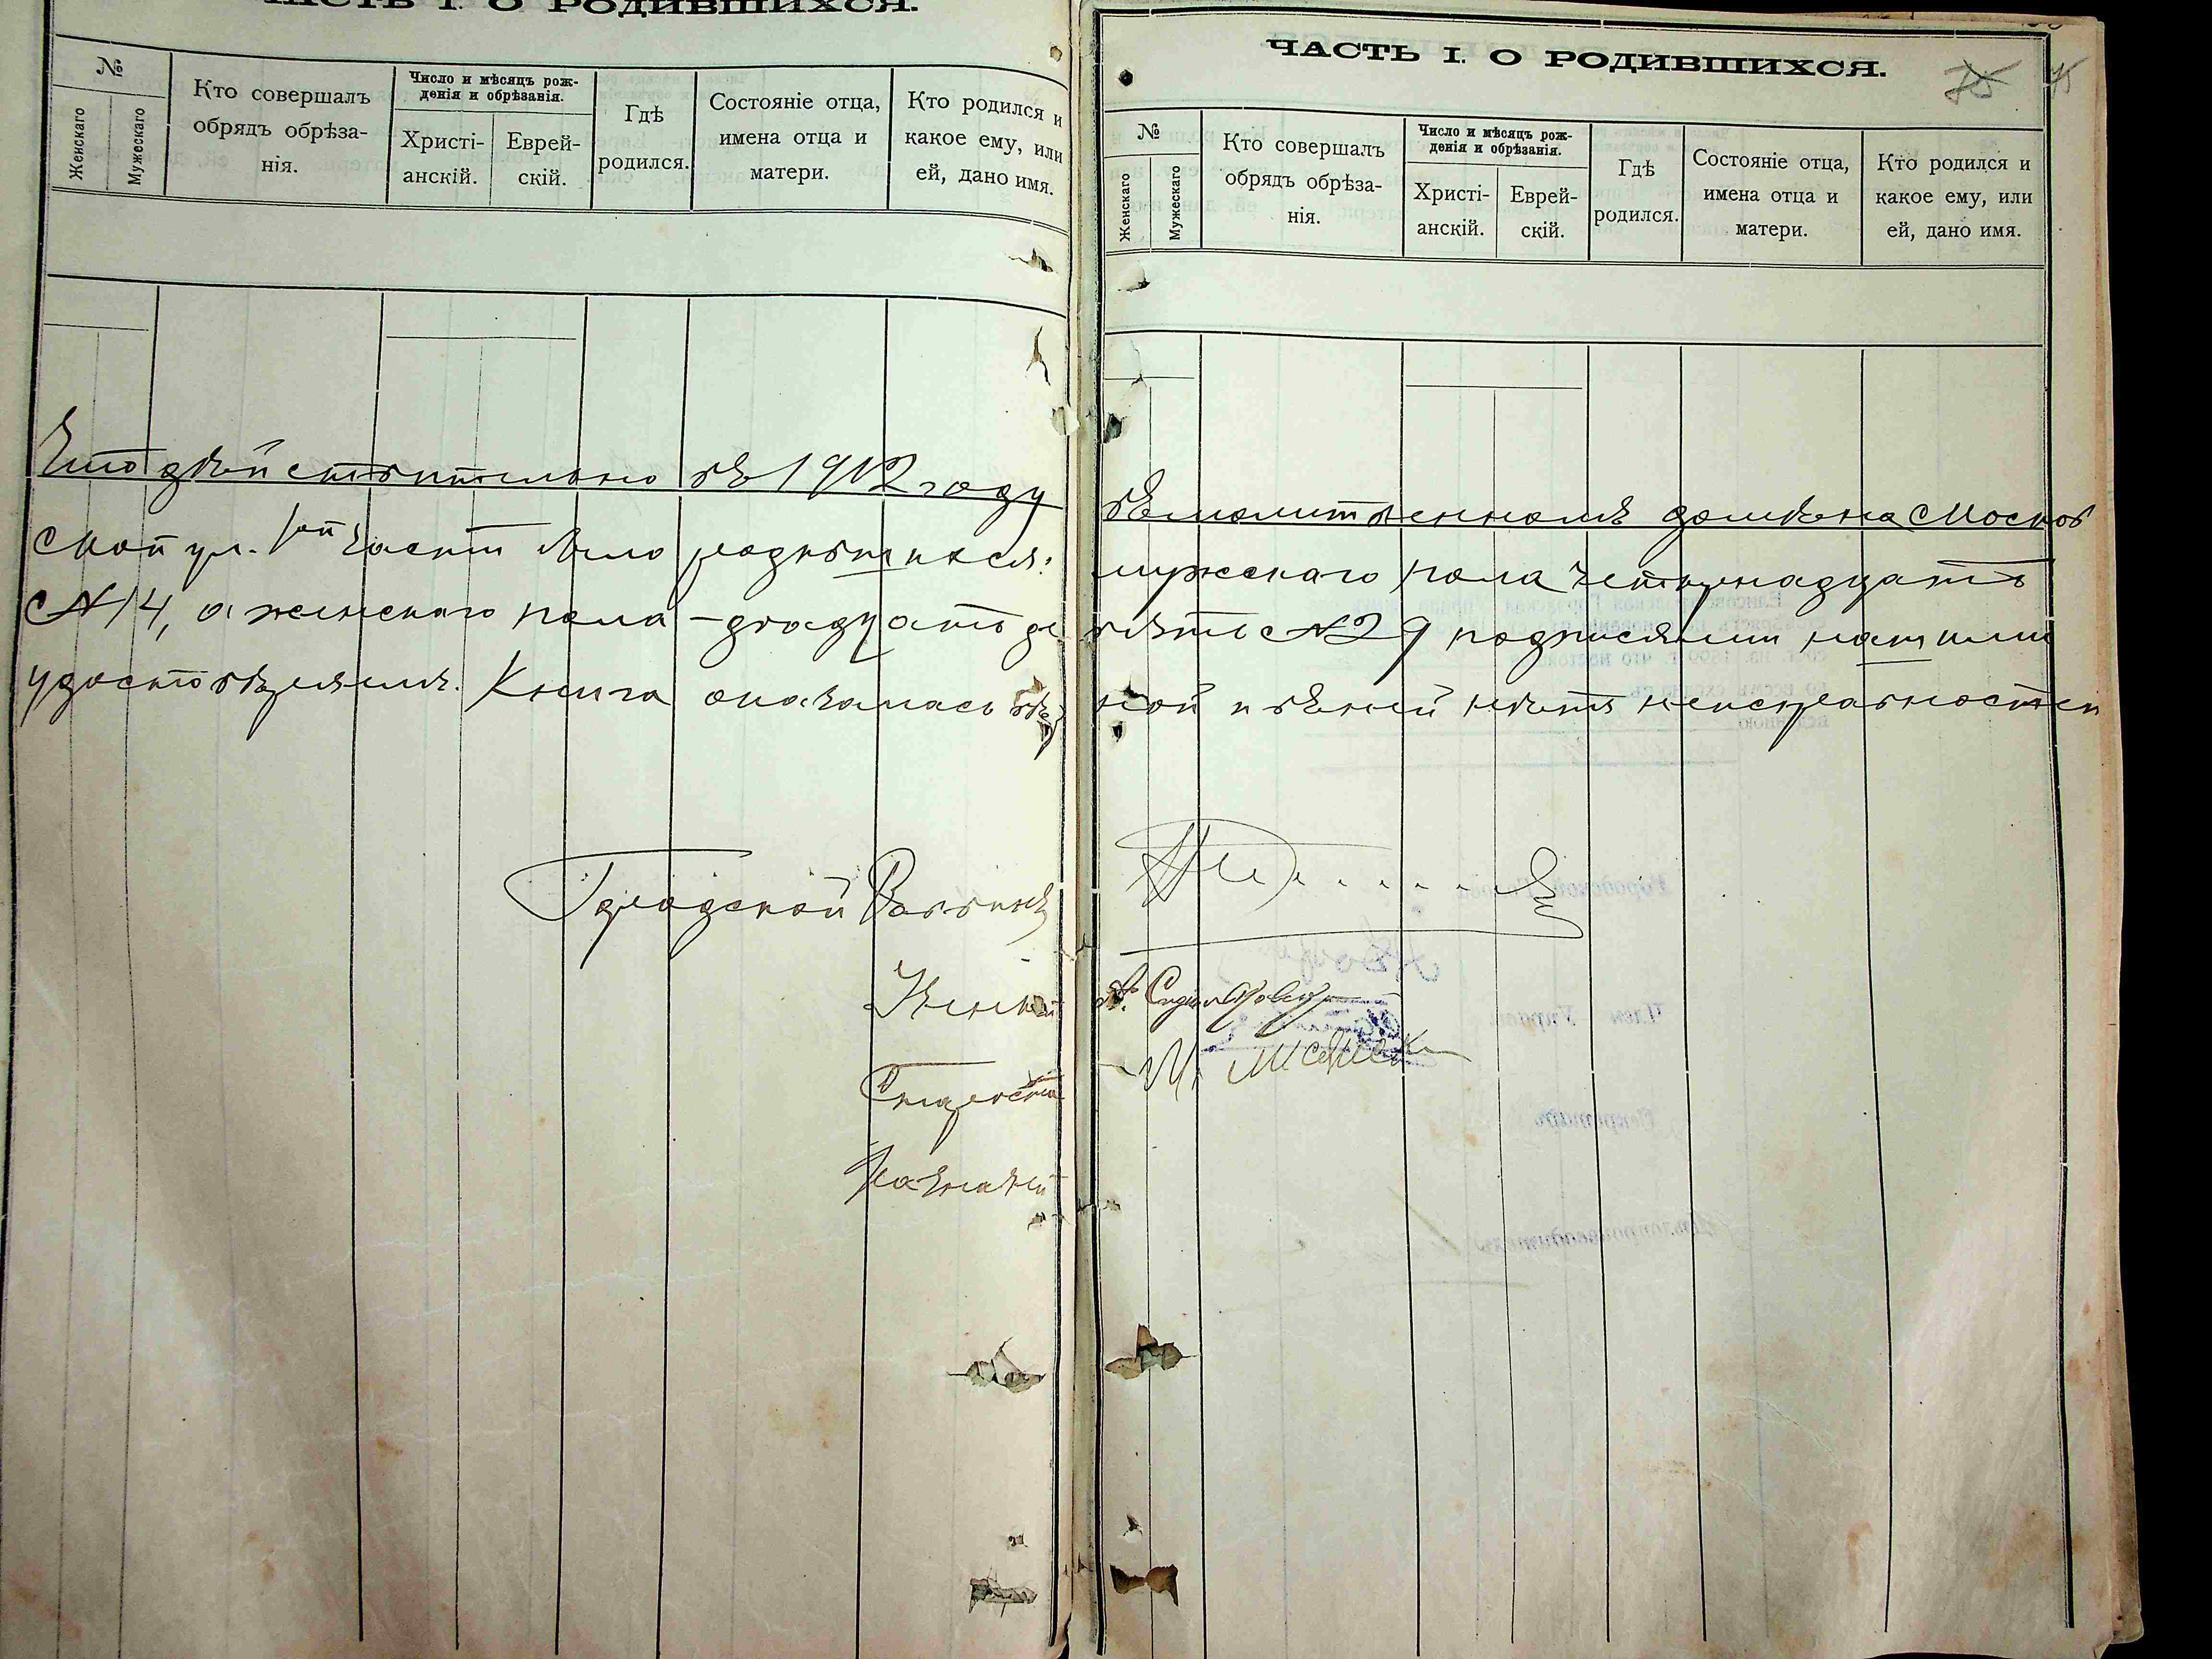 ЧАСТЬ I. О РОДИВШИХСЯ.
№
Женскаго
Мужескаго
Кто совершалъ
обрядъ обрѣза-
нія.
Число и мѣсяцъ рож-
денія и обрѣзанія.
Христі-
анскій.
Еврей-
скій.
Гдѣ
родился.
Состояніе отца,
имена отца и
матери.
Кто родился и
какое ему, или
ей, дано имя.
ЧАСТЬ I. О РОДИВШИХСЯ.
75
№
Женскаго
Мужескаго
Кто совершалъ
обрядъ обрѣза-
нія.
Число и мѣсяцъ рож-
денія и обрѣзанія.
Христі-
анскій.
Еврей-
скій.
Гдѣ
родился.
Состояніе отца,
имена отца и
матери.
Кто родился и
какое ему, или
ей, дано имя.
Что дѣйствительно въ 1912 году въ молитвенномъ домѣ на Москов
ской ул. 1ой части было родившихся: мужескаго пола четырнадцать
№14, а женскаго пола - двадцать девять №29 подписями нашими
удостовѣряемъ. Книга оказалась вѣрной и въ ней нѣтъ неисправностей
Городской Раввинъ
Ученый
Староста
Казначей